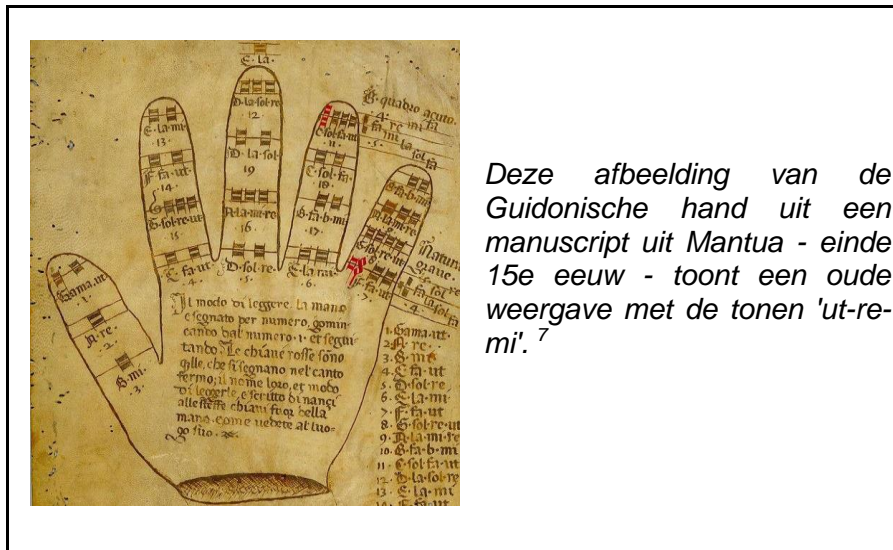 E·la·
D·la·sol·re
12·
C·sol·fa·ut
11
B·quadro acuto.
·4·
fa re mi fa
mi
·5·
la sol
fa
E·la·mi·
·13·
D·la·sol
19
C·sol·fa·
·18·
F·fa·ut
14·
G·sol·re·ut
15
A·la·mi·re
·16·
B·fa·b·mi
·17·
G·fa·b·mi
C·fa·ut·
·4·
D·sol·re·
·5·
E·la·mi·
·6·
F·fa·ut
·7·
Natura
grave·
Gama·ut·
·1·
A·re·
·2·
B·mi·
·3·
Il modo di leggere la mano
e segnato per numero, comin
cando dal numero·1· et segui
tando· Le chiave rosse sono
qlle, che si segnano nel canto
fermo; il nome loro, et modo
di leggerle, e scritto di nanci
alle steffe chiavi fuor della
mano· come vedete al luo-
go suo·
1·Gama·ut·
2·A·re·
3·B·mi
4·C·fa·ut
5·D·sol·re
6·E·la·mi
7·F·fa·ut
8·G·sol·re·ut
9·A·la·mi·re
10·B·fa·b·mi
11·C·sol·fa·ut
12·D·la·sol·re
13·E·la·mi
14·F·fa·ut
Deze afbeelding van de
Guidonische hand uit een
manuscript uit Mantua - einde
15e eeuw - toont een oude
weergave met de tonen 'ut-re-
mi'. 7